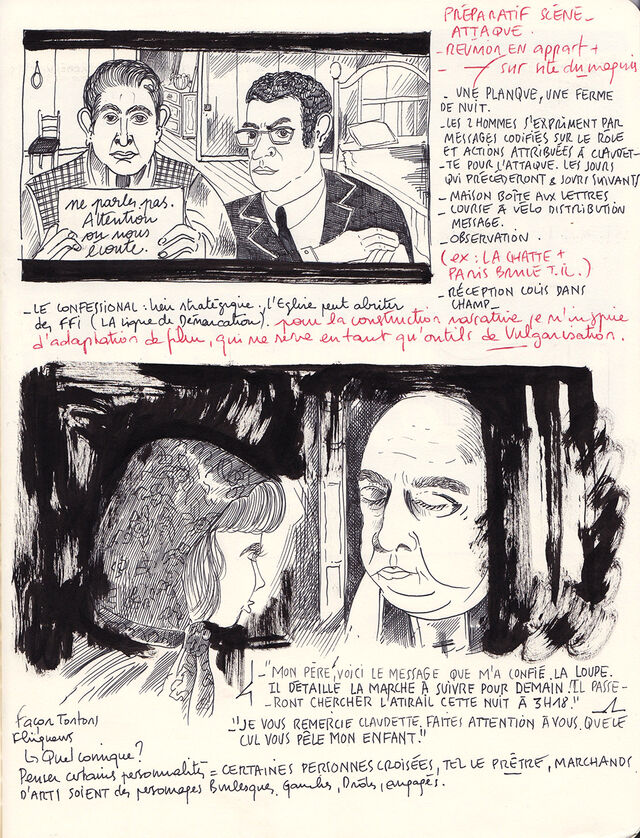 PRÉPARATIF SCÈNE
ATTAQUE.
- REUNION EN appart +
- sur site du maquis
ne parlez pas.
Attention
on nous
écoute.
- UNE PLANQUE, UNE FERME
DE NUIT.
- LES 2 HOMMES S'EXPRIMENT PAR
MESSAGES CODIFIÉS SUR LE RÔLE
ET ACTIONS ATTRIBUÉES À CLAUDET-
TE POUR L'ATTAQUE. LES JOURS
QUI PRÉCÈDERONT & JOURS SUIVANTS
- MAISON BOÎTE AUX LETTRES
- COURSE À VELO DISTRIBUTION
MESSAGE.
- OBSERVATION.
(ex : LA CHATTE +
PARIS BRULE T.IL.)
- RÉCEPTION COLIS DANS
CHAMP -
- LE CONFESSIONAL : lieu stratégique, l'Eglise peut abriter
des FFI (LA Ligne de Démarcation). pour la construction narrative je m'inspire
d'adaptation de film, qui me serve en tant qu'outils de Vulgarisation.
- "MON PÈRE, VOICI LE MESSAGE QUE M'A CONFIÉ LA LOUPE.
IL DÉTAILLE LA MARCHE À SUIVRE POUR DEMAIN. IL PASSE-
RONT CHERCHER L'ATIRAIL CETTE NUIT À 3H18."
- "JE VOUS REMERCIE CLAUDETTE. FAITES ATTENTION À VOUS. QUEL
CUL VOUS PÊLE MON ENFANT."
façon Tontons
Flingueurs
↳ Quel comique?
Penser certains personnalités = CERTAINES PERSONNES CROISÉES, TEL LE PRÊTRE, MARCHANDS
D'ARTS SOIENT des personages Burlesques. Gauches, Drôles, engagés.